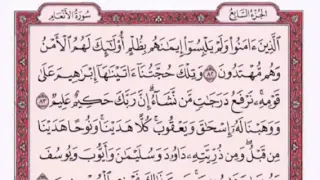 الجزء السابع سورة الأنعام
ٱلَّذِينَ ءَامَنُوا۟ وَلَمْ يَلْبِسُوٓا۟ إِيمَـٰنَهُم بِظُلْمٍ أُو۟لَـٰٓئِكَ لَهُمُ ٱلْأَمْنُ
وَهُم مُّهْتَدُونَ ٨٢ وَتِلْكَ حُجَّتُنَآ ءَاتَيْنَـٰهَآ إِبْرَٰهِيمَ عَلَىٰ
قَوْمِهِۦ نَرْفَعُ دَرَجَـٰتٍ مَّن نَّشَآءُ إِنَّ رَبَّكَ حَكِيمٌ عَلِيمٌ ٨٣
وَوَهَبْنَا لَهُۥٓ إِسْحَـٰقَ وَيَعْقُوبَ كُلًّا هَدَيْنَا وَنُوحًا هَدَيْنَا
مِن قَبْلُ وَمِن ذُرِّيَّتِهِۦ دَاوُۥدَ وَسُلَيْمَـٰنَ وَأَيُّوبَ وَيُوسُفَ